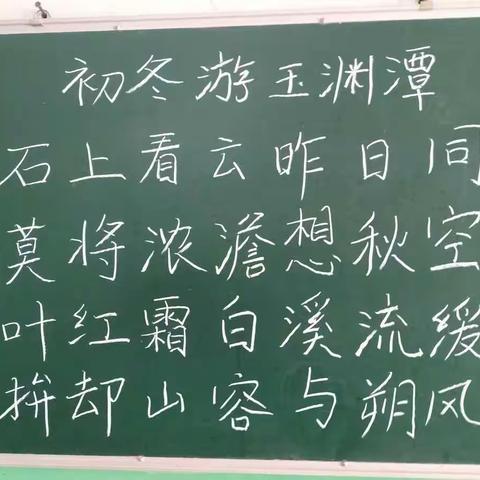 初冬游玉渊潭
石上看云昨日同
莫将浓澹想秋空
叶红霜白溪流缓
拚却山容与朔风